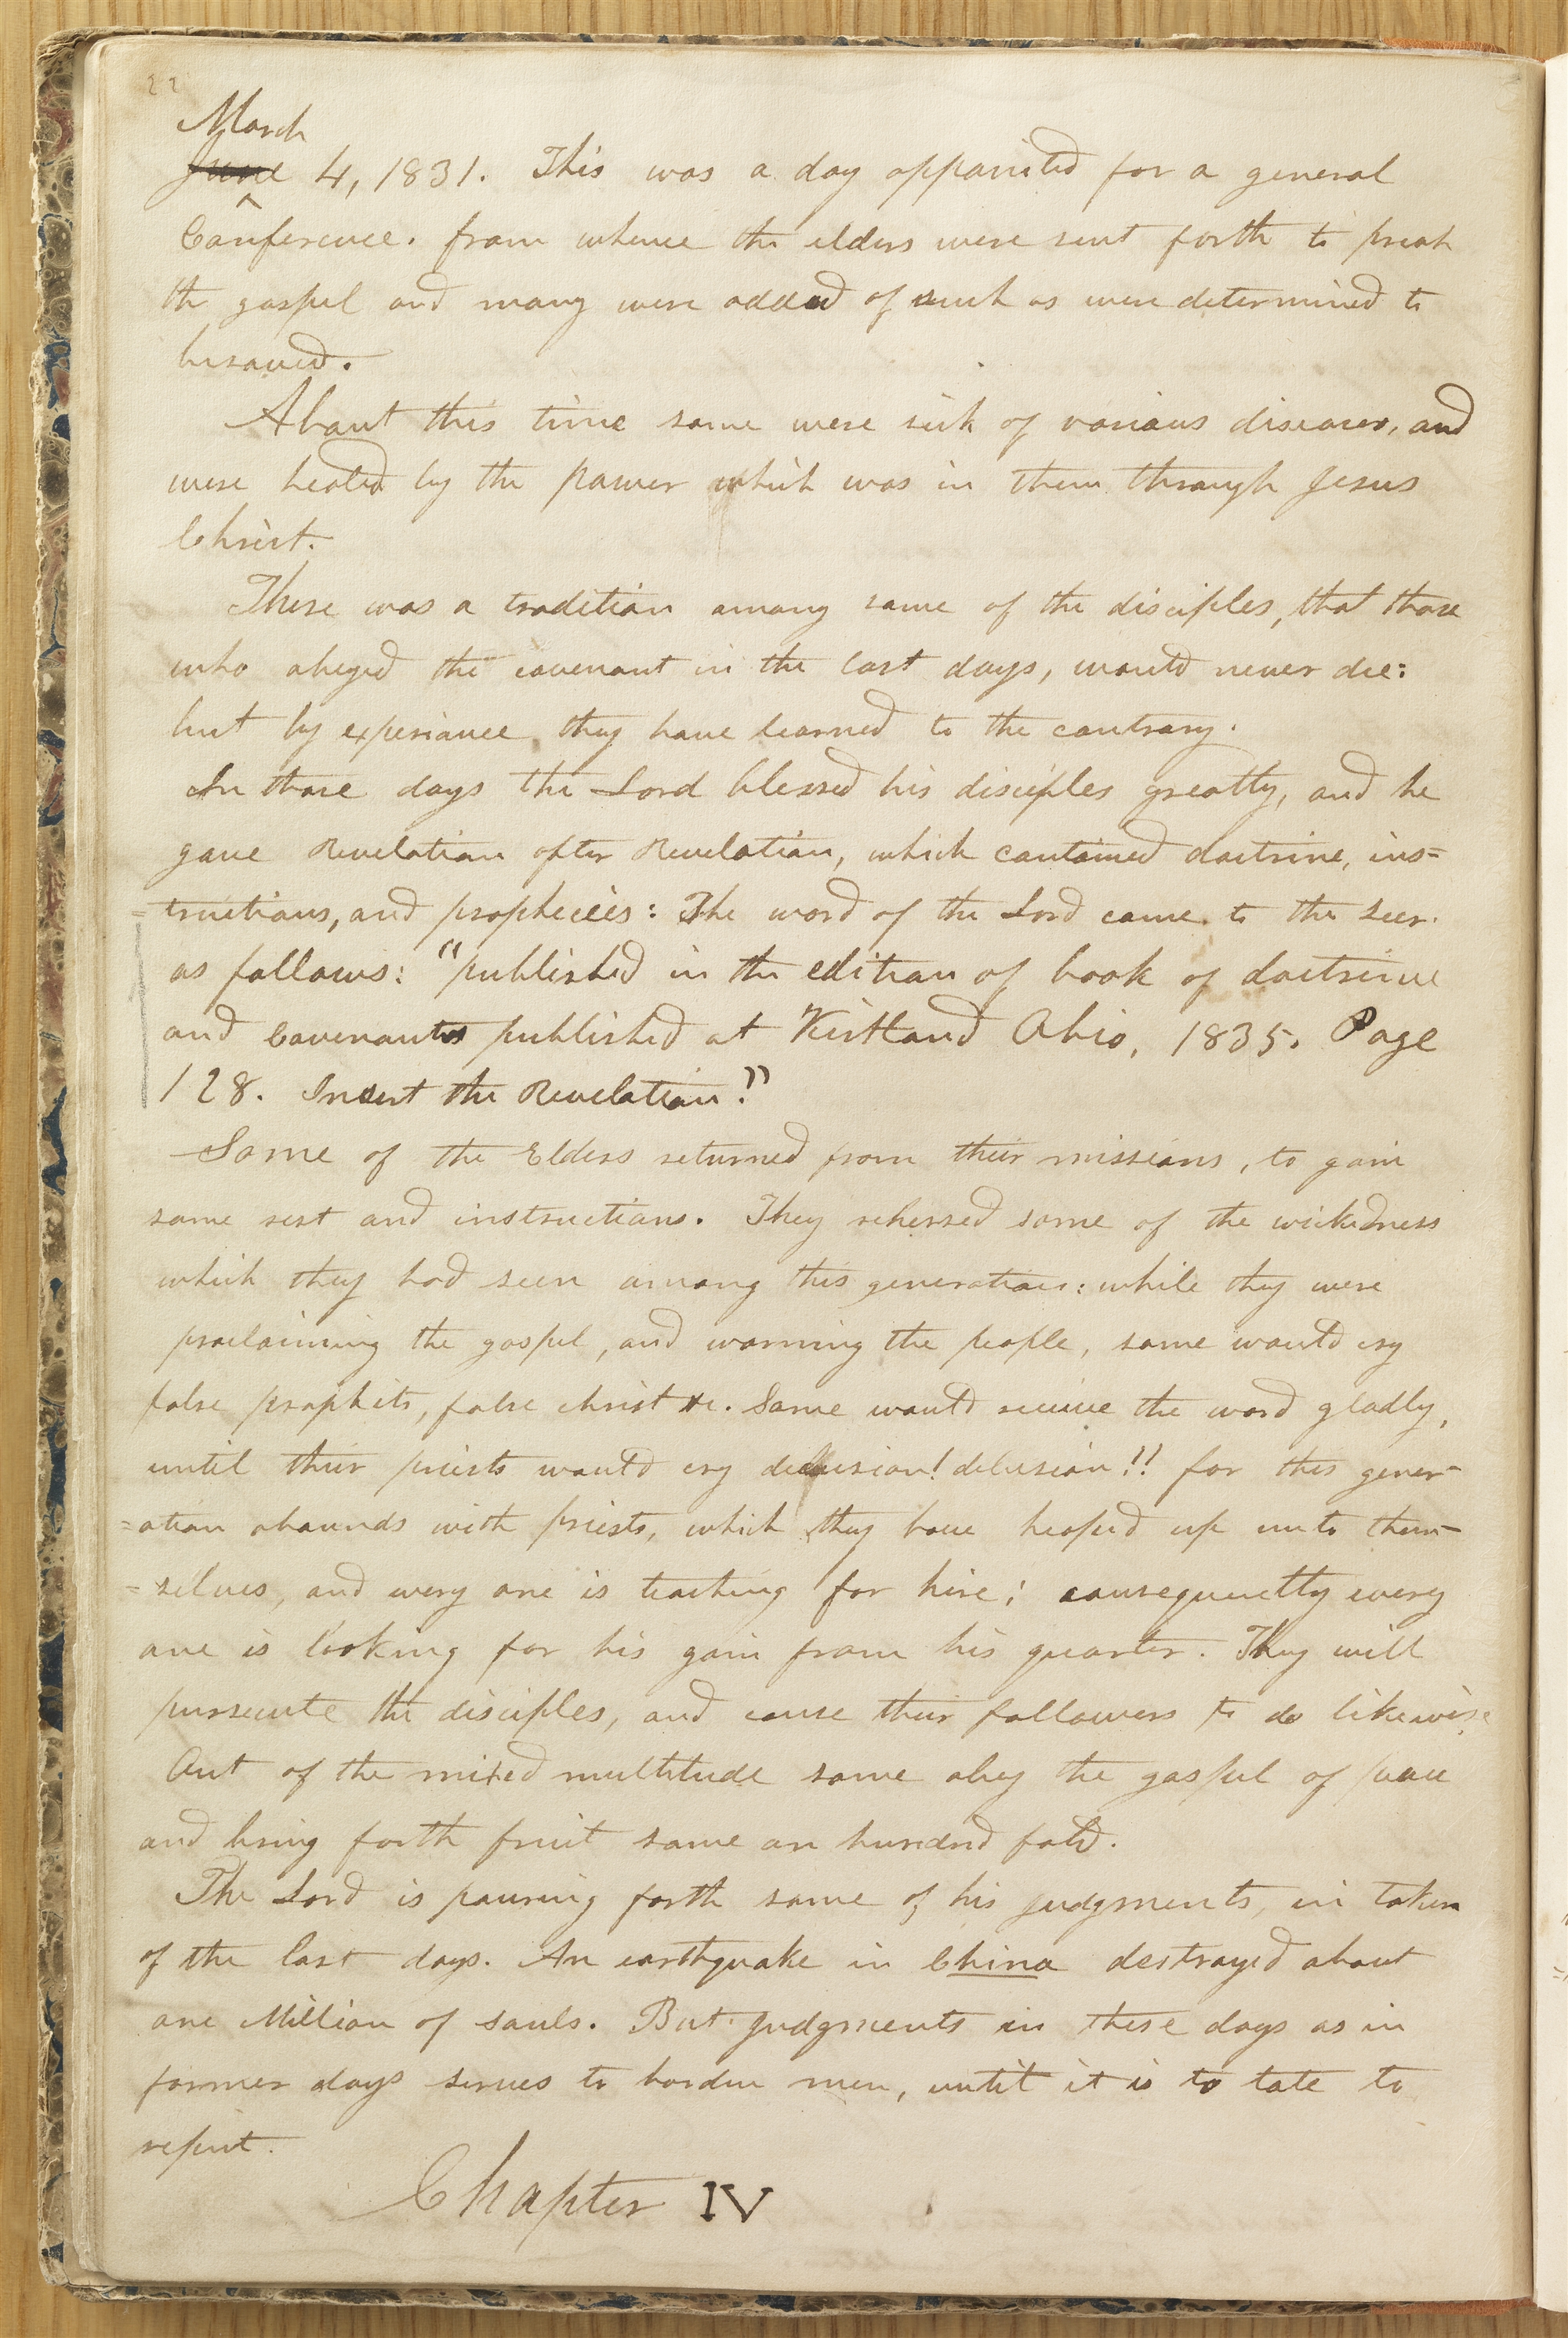 22
March
June 4, 1831. This was a day appointed for a general
Conference. from whence the elders were sent forth to preach
the gospel and many were added of such as were determined to
be saved.
About this time some were sick of various diseases, and
were healed by the power which was in them through Jesus
Christ.
There was a tradition among some of the disciples, that those
who obeyed the covenant in the last days, would never die:
but by experiance, they have learned to the contrary.
In those days the Lord blessed his disciples greatly, and he
gave Revelation after Revelation, which contained doctrine, ins=
=tructions, and prophecies: The word of the Lord came to the seer.
as follows: "published in the edition of book of doctrine
and Covenants published at Kirtland Ohio, 1835. Page
128. Insert the Revelation."
Some of the Elders returned from their missions, to gain
some rest and instructions. They rehersed some of the wickedness
which they had seen among this generation: while they were
proclaiming the gospel, and warning the people, some would cry
false prophets, false christ &c. Some would receive the word gladly,
until their priests would cry delusion! delusion!! for this gener-
=ation abounds with priests, which they have heaped up unto them-
=selves, and every one is teaching for hire; consequently every
one is looking for his gain from his quarter. They will
pursecute the disciples, and cause their followers to do likewise
Out of the mixed multitude some obey the gospel of peace
and bring forth fruit some an hundred fold.
The Lord is pouring forth some of his judgments, in token
of the last days. An earthquake in China destroyed about
one Million of souls. But judgments in these days as in
former days serves to harden men, until it is to late to
repent.
Chapter IV